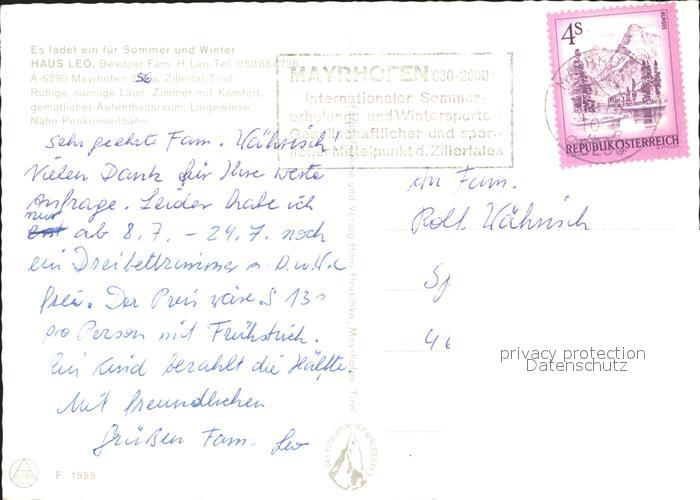 Es ladet ein für Sommer und Winter
HAUS LEO, Besitzer Fam. H. Leo, Tel. 05285
A-6290 Mayrhofen Zillertal, Tirol
Ruhige, sonnige Lage, Zimmer mit Komfort,
gemütlicher Aufenthaltsraum, Liegewiese.
Nähe Penkenseilbahn
MAYRHOFEN 630-2000
Internationaler Sommer-
erholungs- und Wintersportort
Gesellschaftlicher und sport-
licher Mittelpunkt d. Zillertales
4s
ALMSEE
REPUBLIK ÖSTERREICH
Sehr geehrte Fam. Währisch!
Vielen Dank für Ihre werte
Anfrage. Leider habe ich
nur
ab 8.7. – 24.7. noch
ein Dreibettzimmer m. D.u.W.C
frei. Der Preis wäre S 130
pro Person mit Frühstück.
Ein Kind bezahlt die Hälfte.
Mit freundlichen
Grüßen Fam. Leo
An Fam.
Rolf Währisch
privacy protection
Datenschutz
F 1955